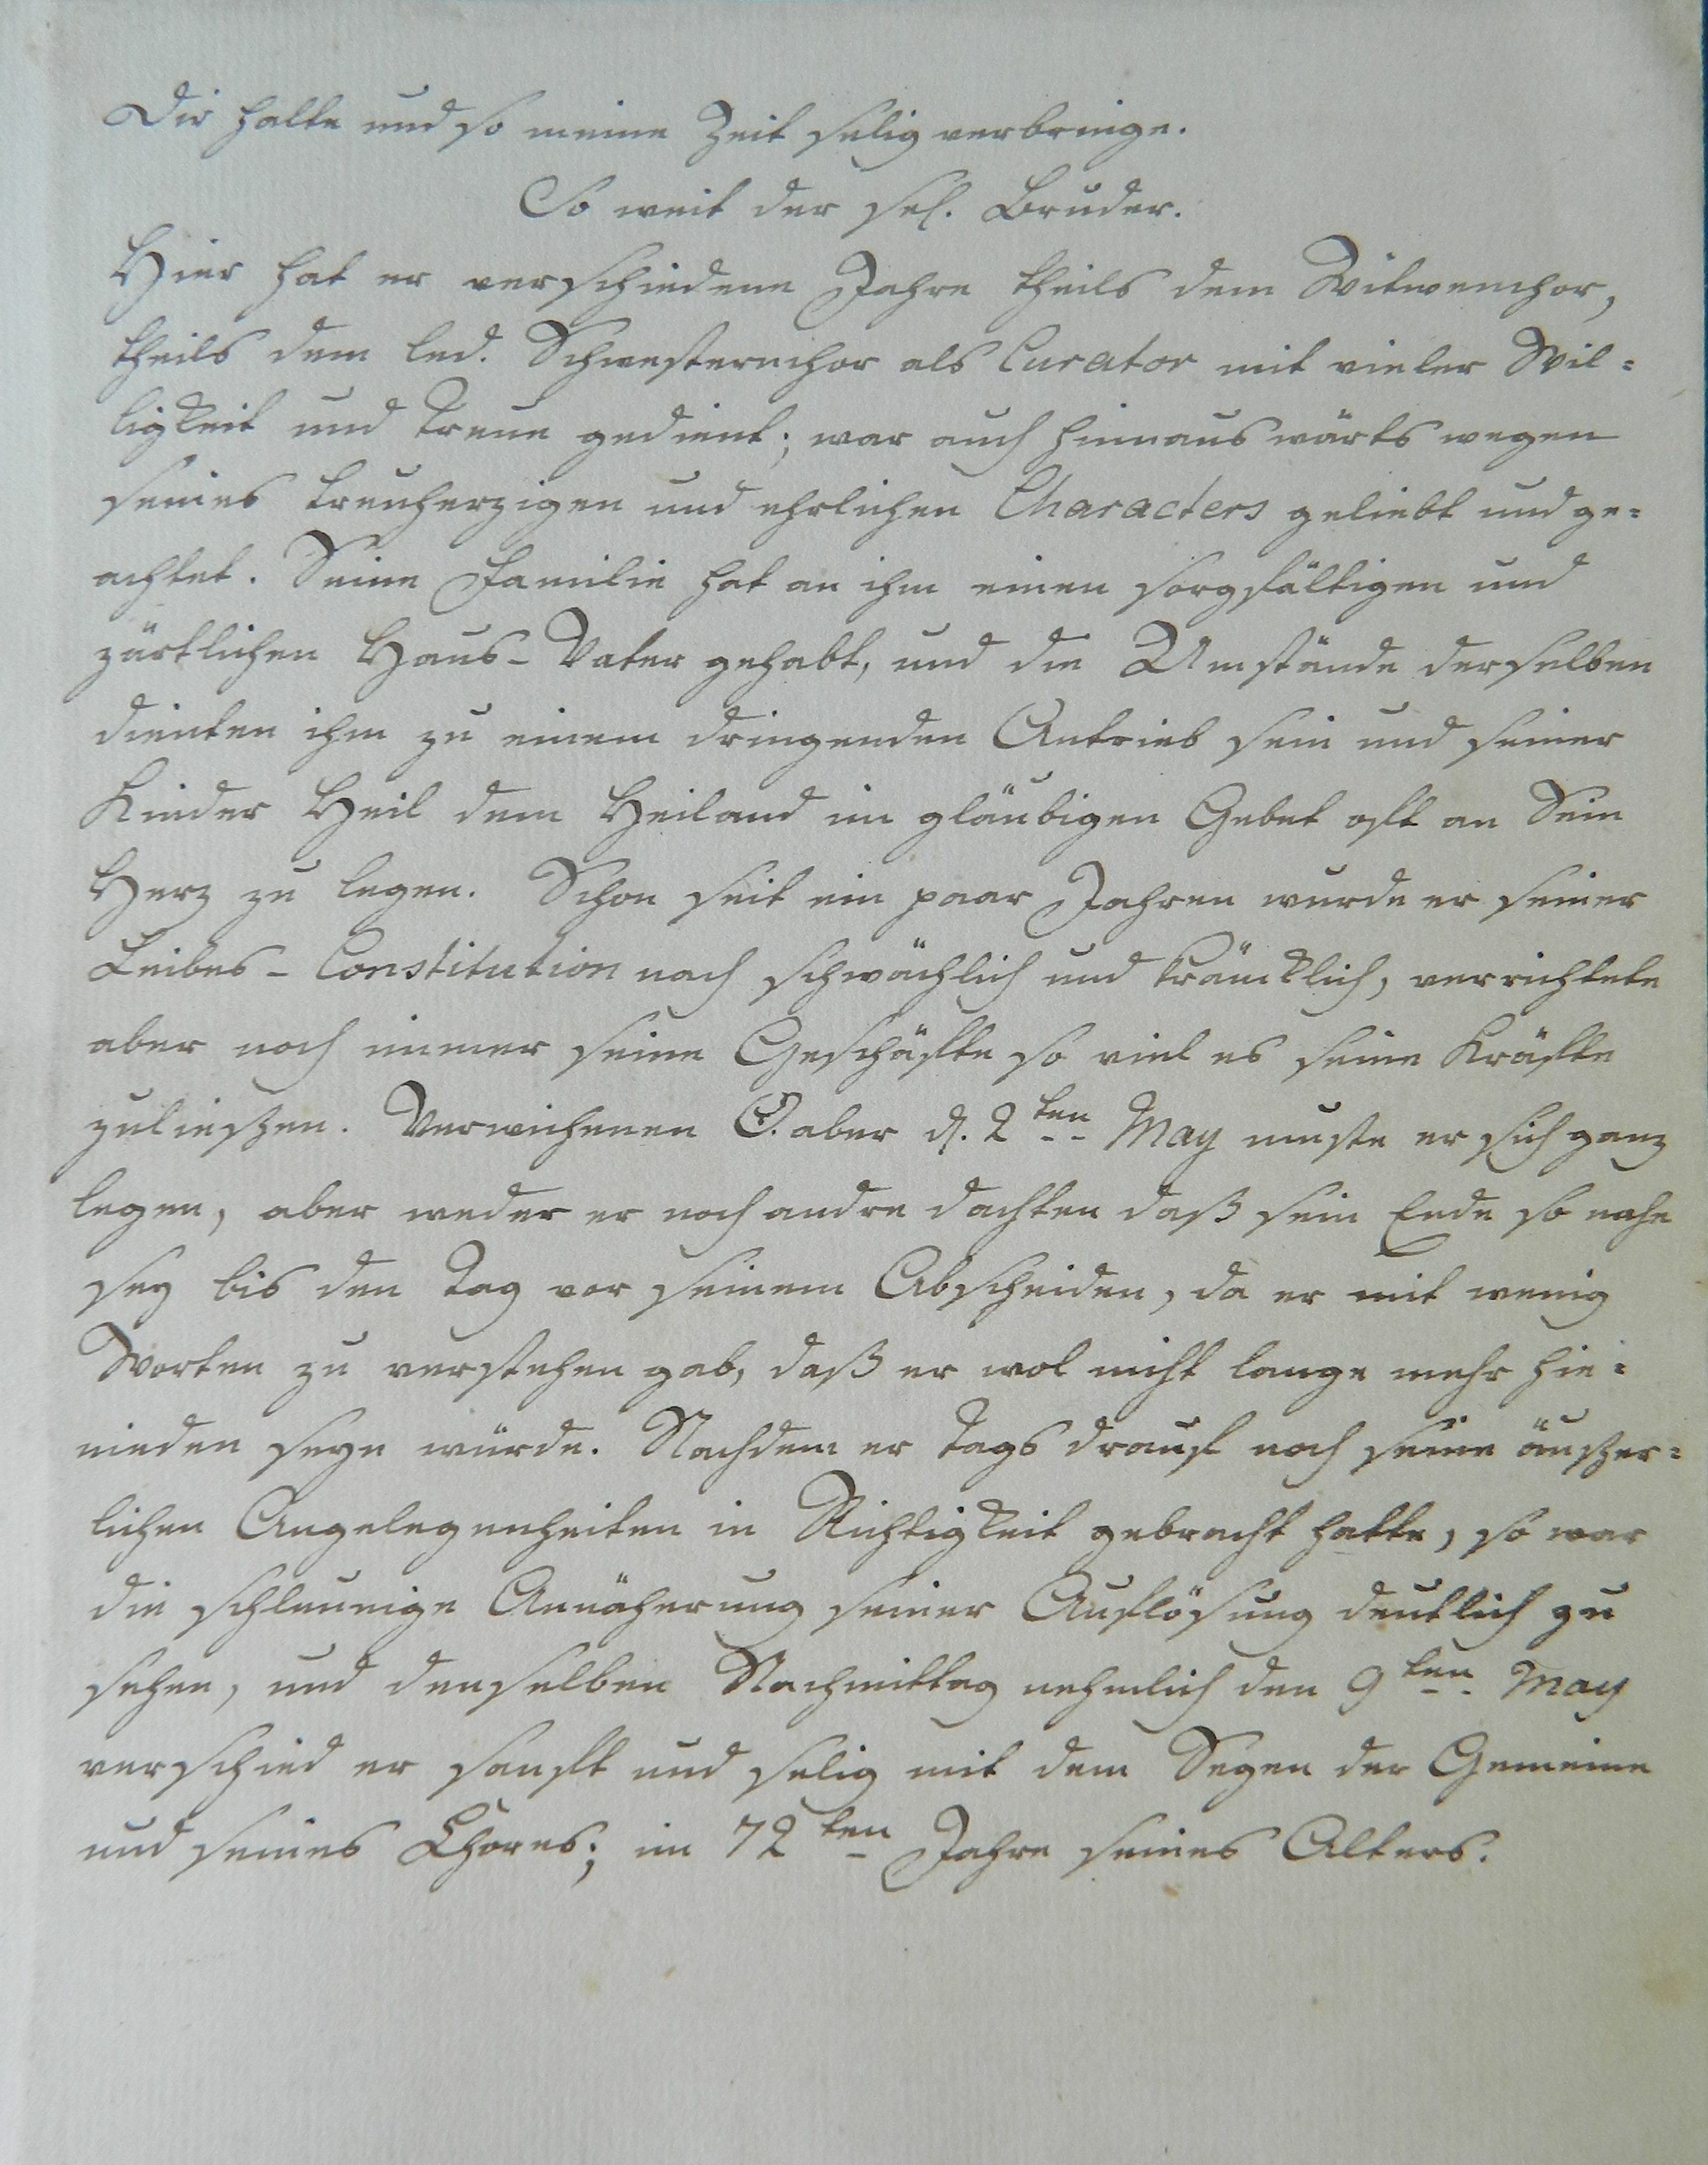 Dir halte und so meine Zeit selig verbringe.
So weit der sel. Bruder.
Hier hat er verschiedene Jahre theils dem Witwenchor,
theils dem led. Schwesternchor als Curator mit vieler Wil=
ligkeit und Treue gedient; war auch hinauswärts wegen
seines treuherzigen und ehrlichen Characters geliebt und ge=
achtet. Seine Familie hat an ihm einen sorgfältigen und
zärtlichen Haus-Vater gehabt, und die Umstände derselben
dienten ihm zu einem dringenden Antrieb sein und seiner
Kinder Heil dem Heiland im gläubigen Gebet oft an Sein
Herz zu legen. Schon seit ein paar Jahren wurde er seiner
Leibes-Constitution nach schwächlich und kräncklich, verrichtete
aber noch immer seine Geschäfte so viel es seine Kräfte
zuliessen. Verwichenen aber d. 2ten May muste er sich ganz
legen, aber weder er noch andre dachten daß sein Ende so nahe
sey bis den Tag vor seinem Abscheiden, da er mit wenig
Worten zu verstehen gab, daß er wol nicht lange mehr hie=
nieden seyn würde. Nachdem er Tags drauf noch seine äusser=
lichen Angelegenheiten in Richtigkeit gebracht hatte, so war
die schleunige Annäherung seiner Auflösung deutlich zu
sehen, und denselben Nachmittag nehmlich den 9ten May
verschied er sanft und selig mit dem Segen der Gemeine
und seines Chores; im 72ten Jahre seines Alters.